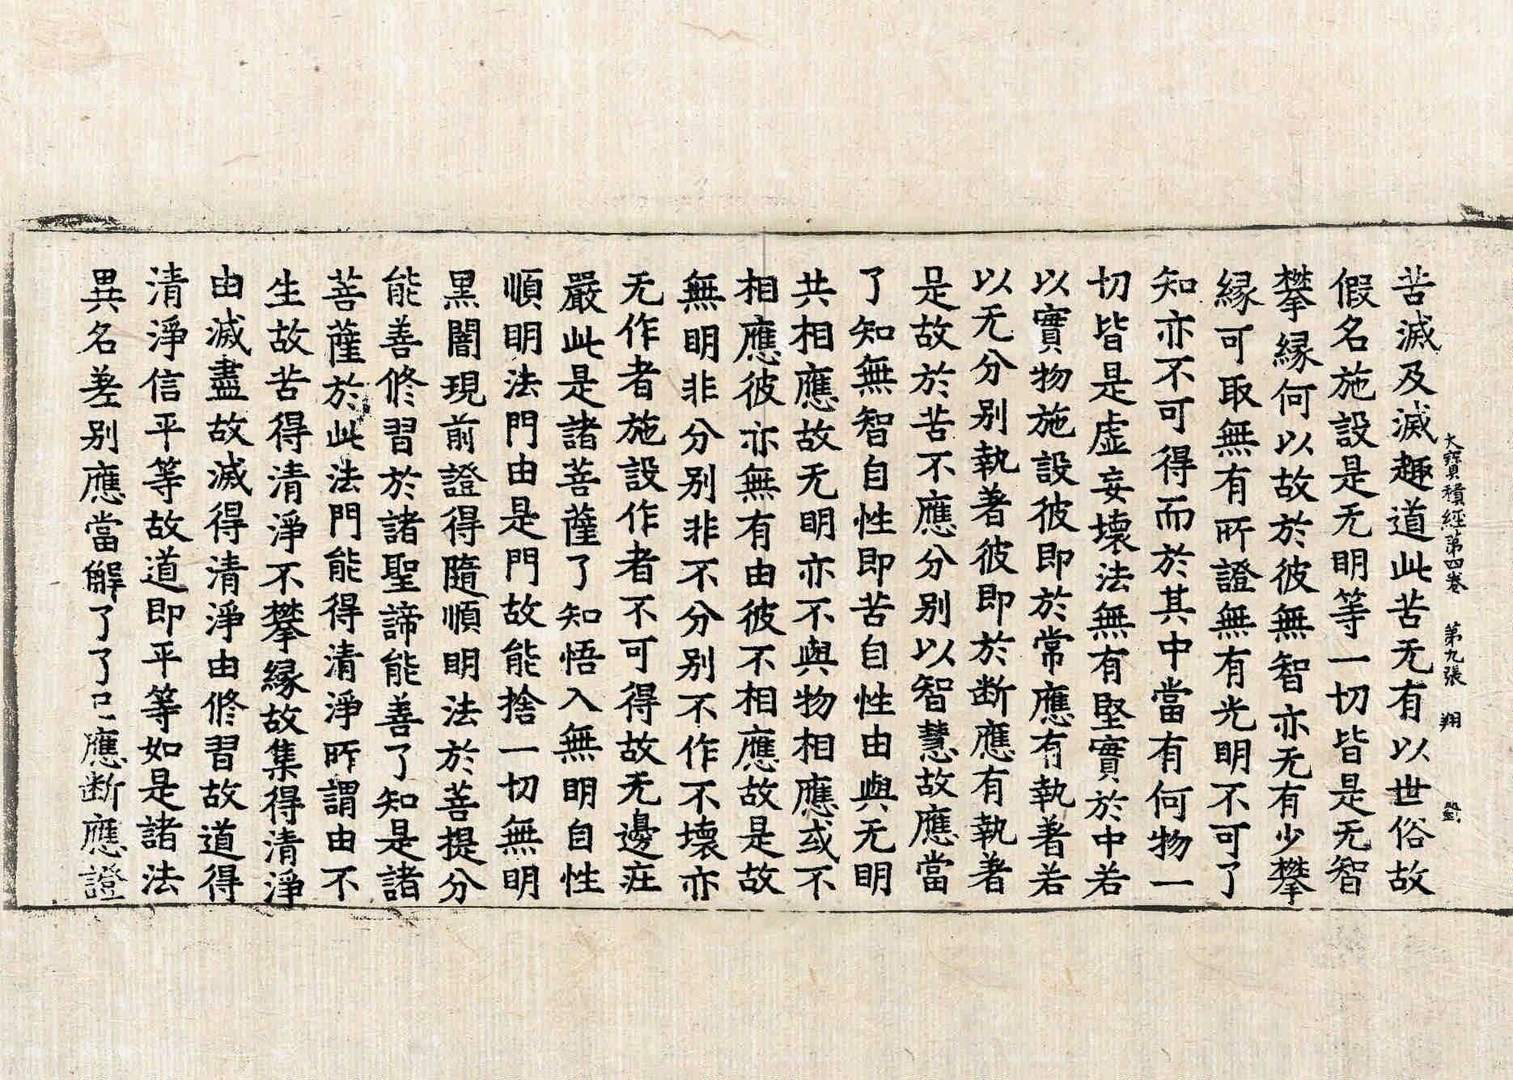 大寶積經第四卷　第九張　翔
苦滅及滅趣道此苦无有以世俗故
假名施設是无明等一切皆是无智
攀縁何以故於彼無智亦无有少攀
縁可取無有所證無有光明不可了
知亦不可得而於其中當有何物一
切皆是虛妄壞法無有堅實於中若
以實物施設彼即於常應有執著若
以无分別執著彼即於断應有執著
是故於苦不應分別以智慧故應當
了知無智自性即苦自性由與无明
共相應故无明亦不與物相應或不
相應彼亦無有由彼不相應故是故
無明非分別非不分別不作不壞亦
无作者施設作者不可得故无邊庄
嚴此是諸菩薩了知悟入無明自性
順明法門由是門故能捨一切無明
黑闇現前證得隨順明法於菩提分
能善修習於諸聖諦能善了知是諸
菩薩於此法門能得清淨所謂由不
生故苦得清淨不攀縁故集得清淨
由滅盡故滅得清淨由修習故道得
清淨信平等故道即平等如是諸法
異名差別應當解了了已應断應證